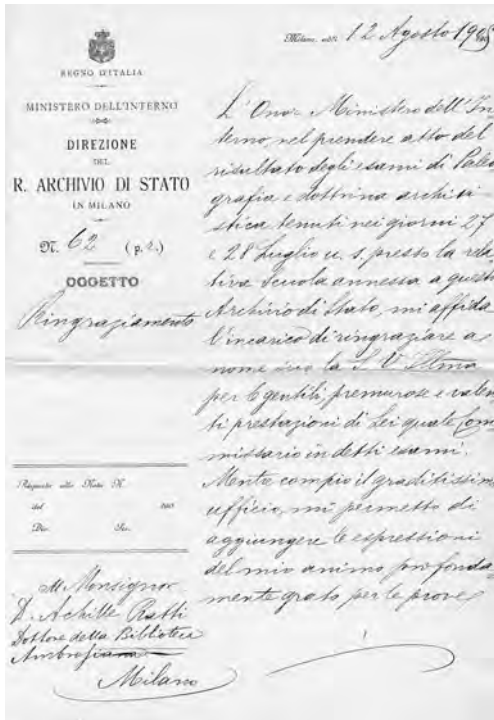 REGNO D'ITALIA
MINISTERO DELL'INTERNO
DIREZIONE
DEL
R. ARCHIVIO DI STATO
IN MILANO
N. 62 (p. r.)
OGGETTO
Ringraziamento
Risposta alla Nota N.
del 190
Div. Sez.
Monsignor
D. Achille Ratti
Dottore della Biblioteca
Ambrosiana
Milano
Milano, addì 12 Agosto 190
L'Onor. Ministero dell'In
terno, nel prendere atto del
risultato degli esami di Paleo
grafia e dottrina archivi
stica tenuti nei giorni 27
e 28 Luglio u. s. presso la rela
tiva Scuola annessa a questo
Archivio di Stato, mi affida
l'incarico di ringraziare a
nome suo la S. V. Illma
per le gentili, premurose e valen
ti prestazioni di Lei quale Com
missario in detti esami.
Mentre compio il graditissimo
ufficio, mi permetto di
aggiungere le espressioni
del mio animo profonda
mente grato per le prove